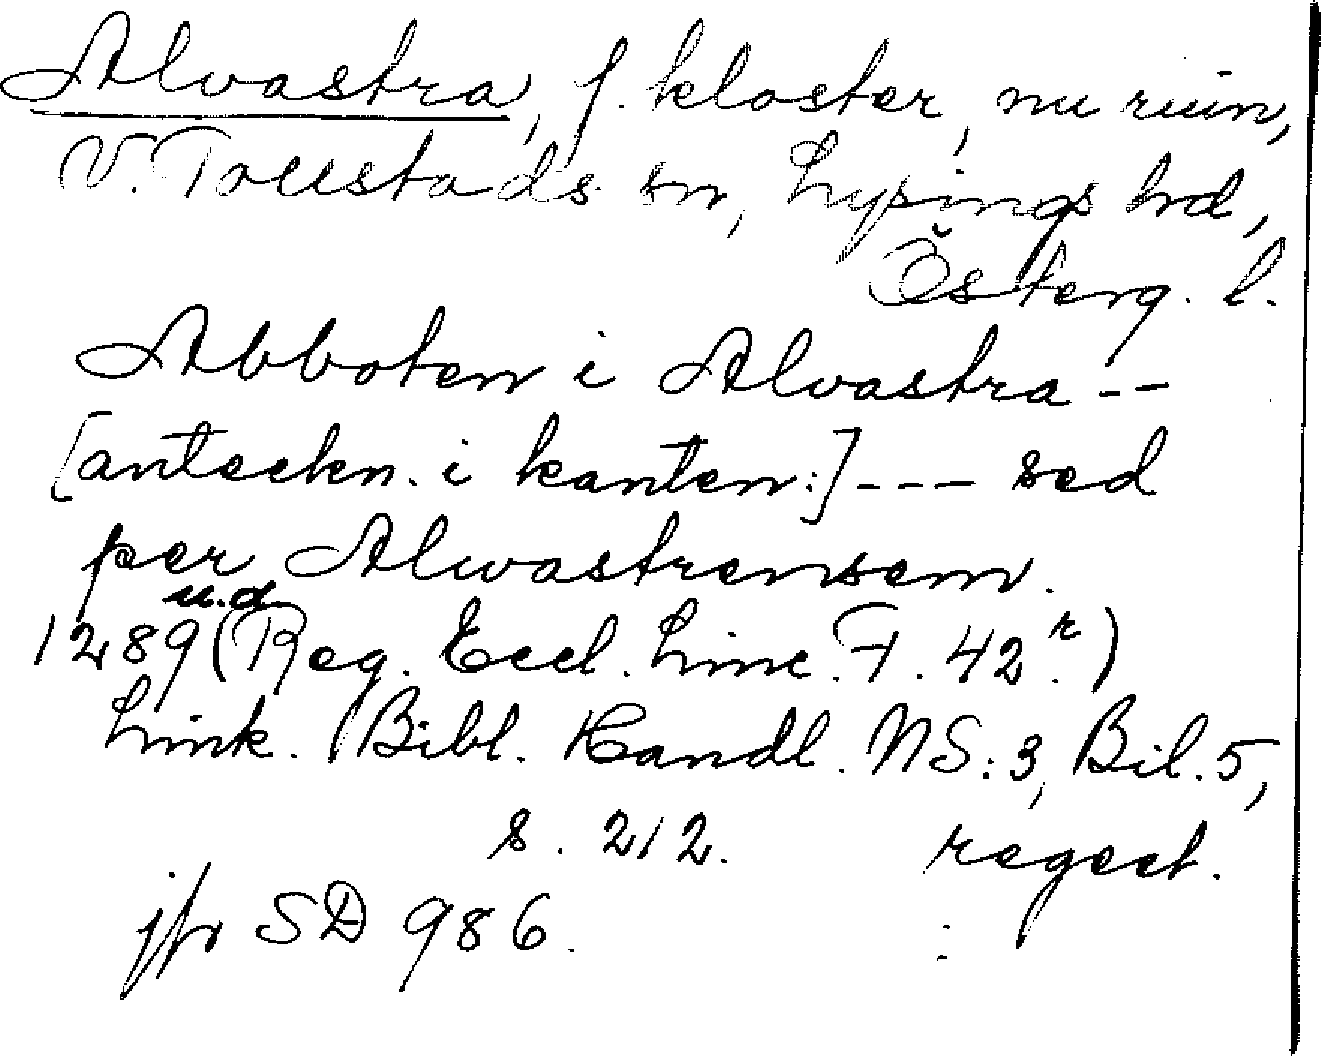 Alvastra, f. kloster, nu ruin,
V. Tollstads sn, Lysings hd,
Österg. l.
Abboten i Alvastra --
[anteckn. i kanten:] --- sed
per Alwastrensem.
u.d.
1289 (Reg. Eccl. Linc. F. 42 r.)
Link. Bibl. Handl. NS: 3, Bil. 5,
s. 212. regest.
jfr SD 986.